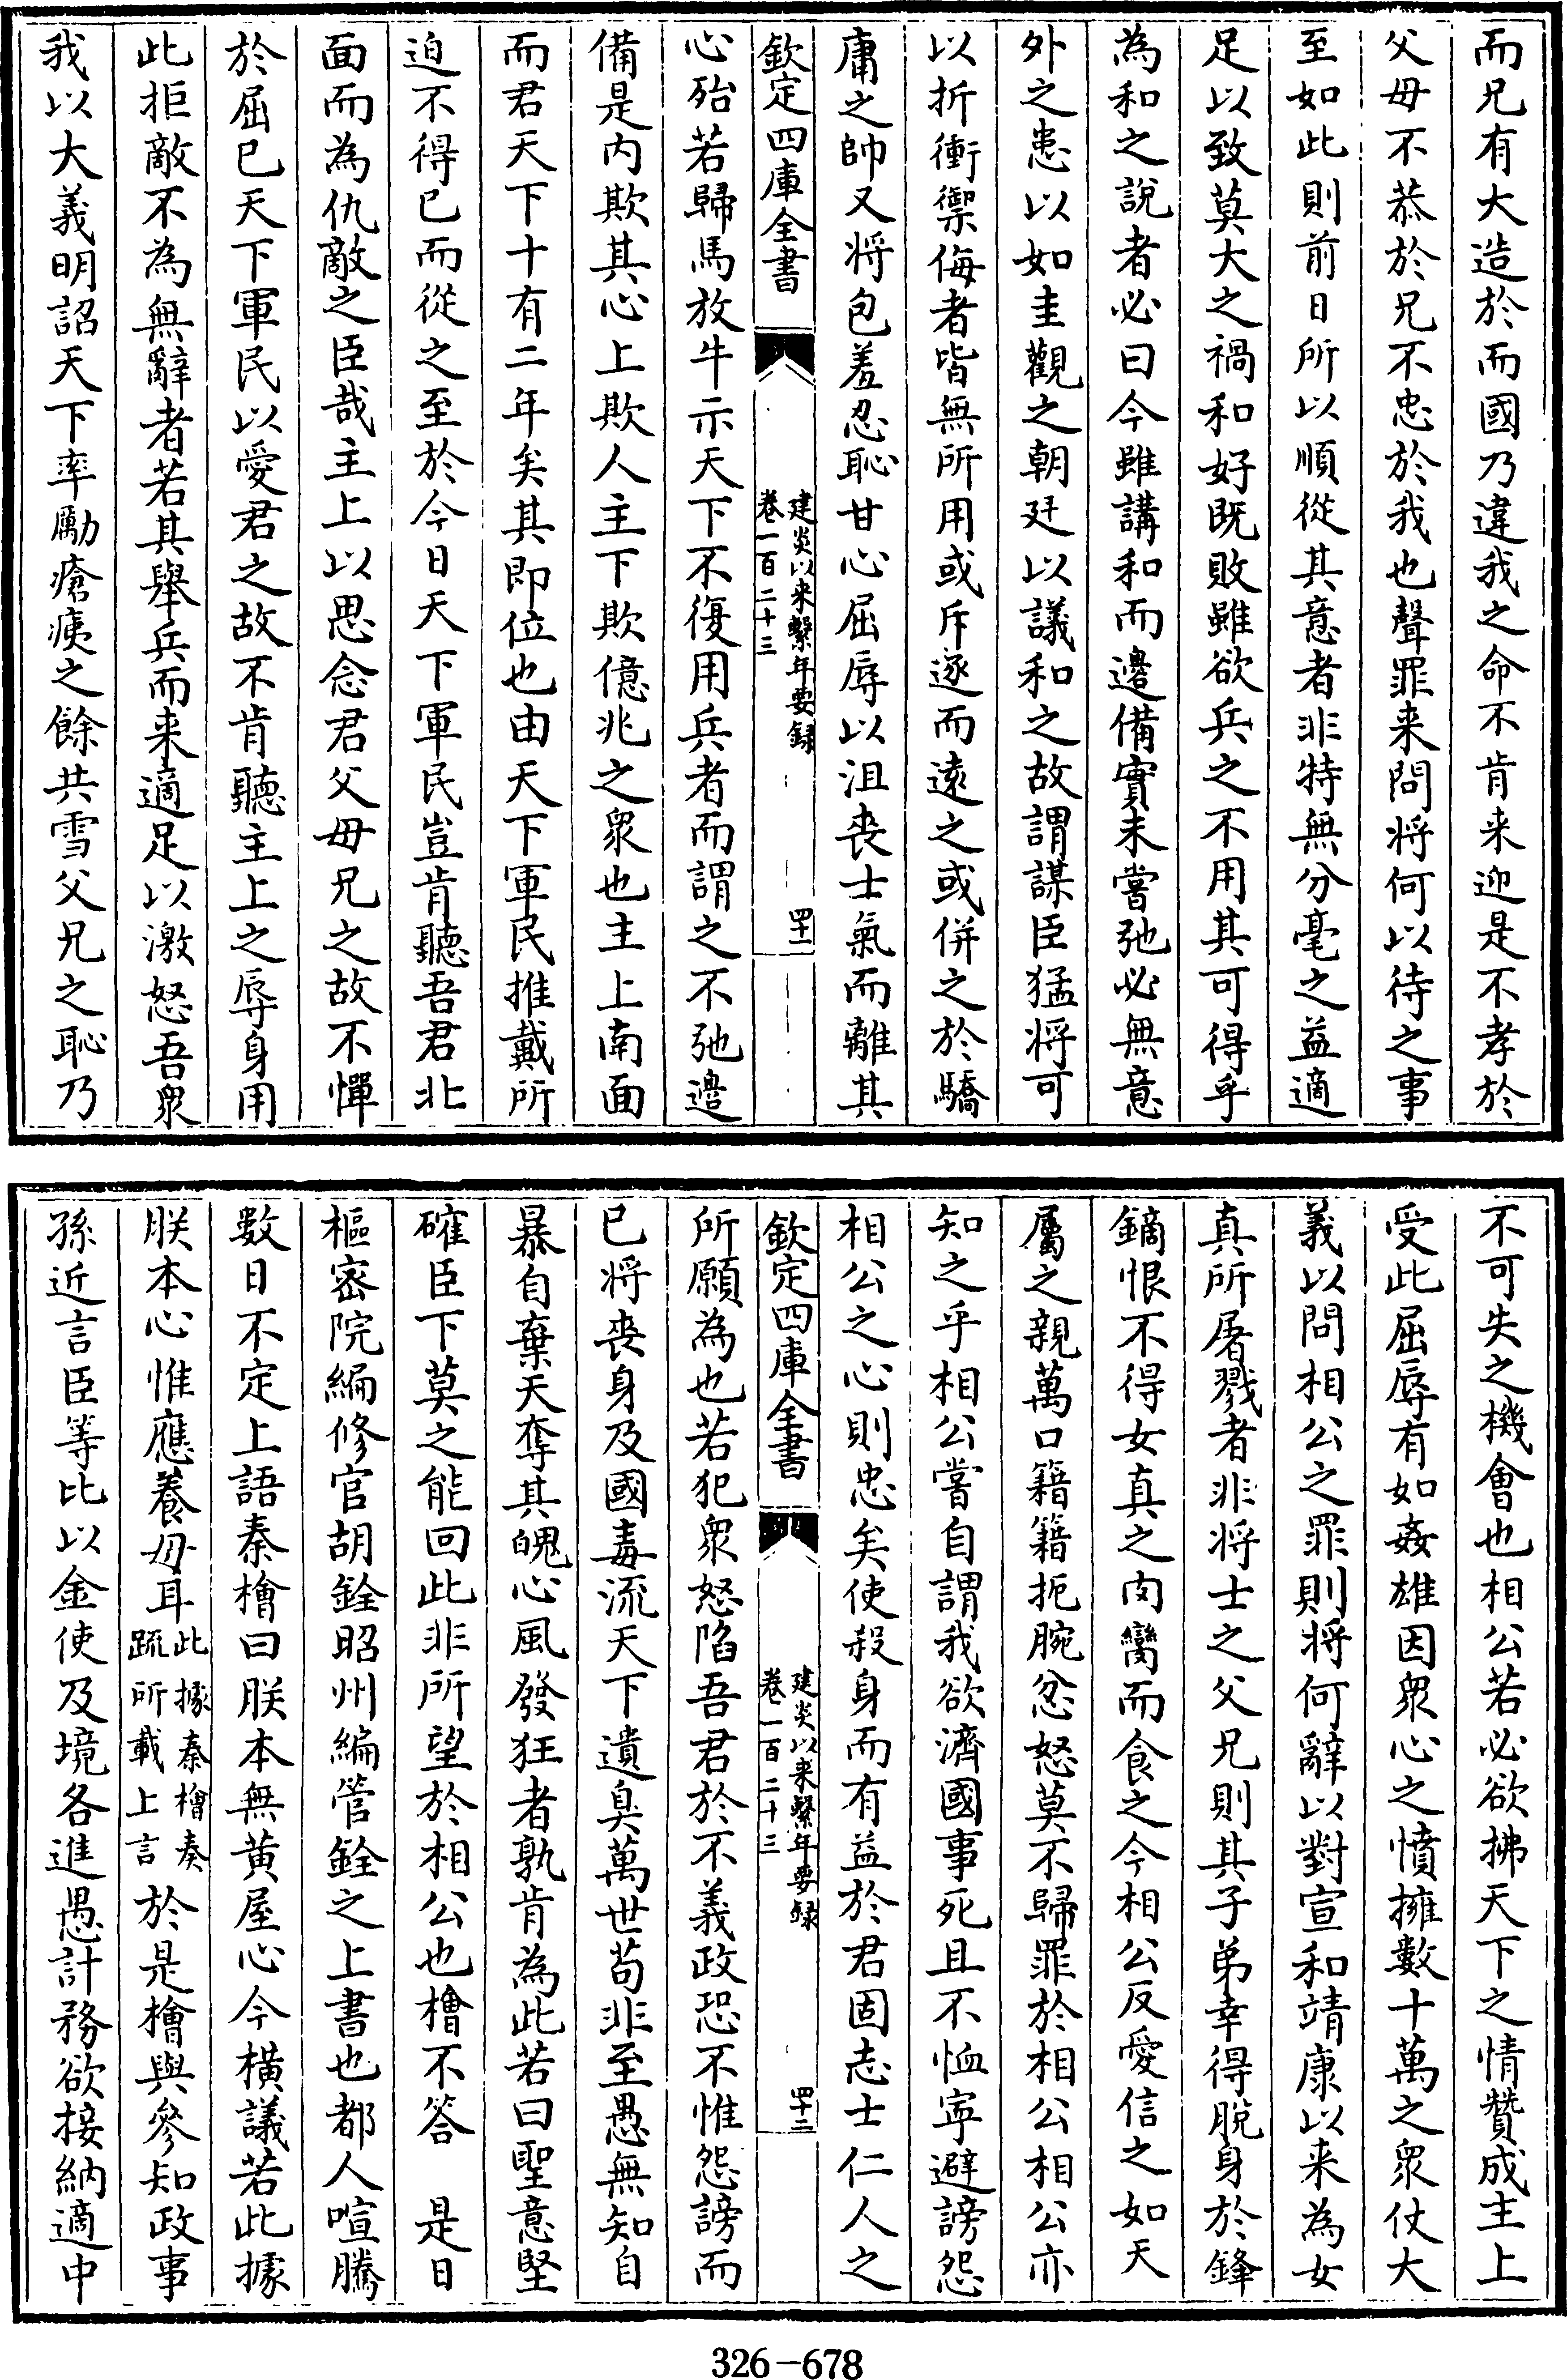 而兄有大造於而國乃違我之命不肯来迎是不孝於
父母不恭於兄不忠於我也聲罪来問将何以待之事
至如此則前日所以順從其意者非特無分毫之益適
足以致莫大之禍和好既敗雖欲兵之不用其可得乎
為和之說者必曰今雖講和而邊備實未嘗弛必無意
外之患以如圭觀之朝廷以議和之故謂謀臣猛将可
以折衝禦侮者皆無所用或斥逐而遠之或併之於驕
庸之帥又将包羞忍恥甘心屈辱以沮喪士氣而離其
欽定四庫全書
建炎以来繫年要録
卷一百二十三
四十一
心殆若歸馬放牛示天下不復用兵者而謂之不弛邊
備是内欺其心上欺人主下欺億兆之衆也主上南面
而君天下十有二年矣其即位也由天下軍民推戴所
迫不得已而從之至於今日天下軍民豈肯聽吾君北
面而為仇敵之臣哉主上以思念君父母兄之故不憚
於屈已天下軍民以愛君之故不肯聽主上之辱身用
此拒敵不為無辭者若其舉兵而来適足以激怒吾衆
我以大義明詔天下率勵瘡痍之餘共雪父兄之恥乃
不可失之機會也相公若必欲拂天下之情贊成主上
受此屈辱有如姦雄因衆心之憤擁數十萬之衆仗大
義以問相公之罪則将何辭以對宣和靖康以来為女
真所屠戮者非将士之父兄則其子弟幸得脫身於鋒
鏑恨不得女真之肉臠而食之今相公反愛信之如天
屬之親萬口籍籍扼腕忿怒莫不歸罪於相公相公亦
知之乎相公嘗自謂我欲濟國事死且不恤寧避謗怨
相公之心則忠矣使殺身而有益於君固志士仁人之
欽定四庫全書
建炎以来繫年要録
卷一百二十三
四十二
所願為也若犯衆怒陷吾君於不義政恐不惟怨謗而
已将喪身及國毒流天下遺臭萬世苟非至愚無知自
暴自棄天奪其魄心風發狂者孰肯為此若曰聖意堅
確臣下莫之能回此非所望於相公也檜不答　是日
樞密院編修官胡銓昭州編管銓之上書也都人喧騰
數日不定上語秦檜曰朕本無黄屋心今横議若此據
朕本心惟應養母耳此據秦檜奏疏所載上言於是檜與參知政事
孫近言臣等比以金使及境各進愚計務欲接納適中
326－678